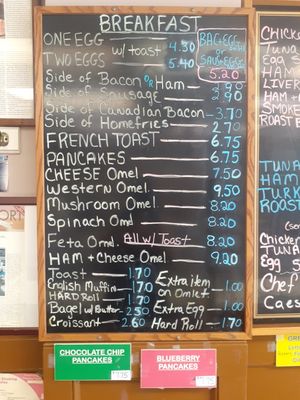 BREAKFAST
ONE EGG w/ toast 4.30
TWO EGGS 5.40
BAC+EGG
SAUS+EGG
5.20
Side of Bacon OR Ham 2.90
Side of Sausage 2.90
Side of Canadian Bacon 3.70
Side of Homefries 2.70
FRENCH TOAST 6.75
PANCAKES 6.75
CHEESE Omel 7.50
Western Omel. 9.50
Mushroom Omel 8.20
Spinach Omel 8.20
Feta Omel All w/ Toast 8.20
HAM + Cheese Omel 9.20
Toast 1.70
English Muffin 1.70
HARD Roll 1.70
Bagel w/ Butter 2.50
Croissant 2.60
Extra item on Omlet 1.00
Extra Egg 1.00
Hard Roll 1.70
CHOCOLATE CHIP
PANCAKES
BLUEBERRY
PANCAKES
Chick
TUNA
Egg S
HAM
LIVER
HAM +
SMOKE
ROAST
TUNA
HAM
TURK
ROOS
Chicke
TUNA
Egg S
Chef
Caes